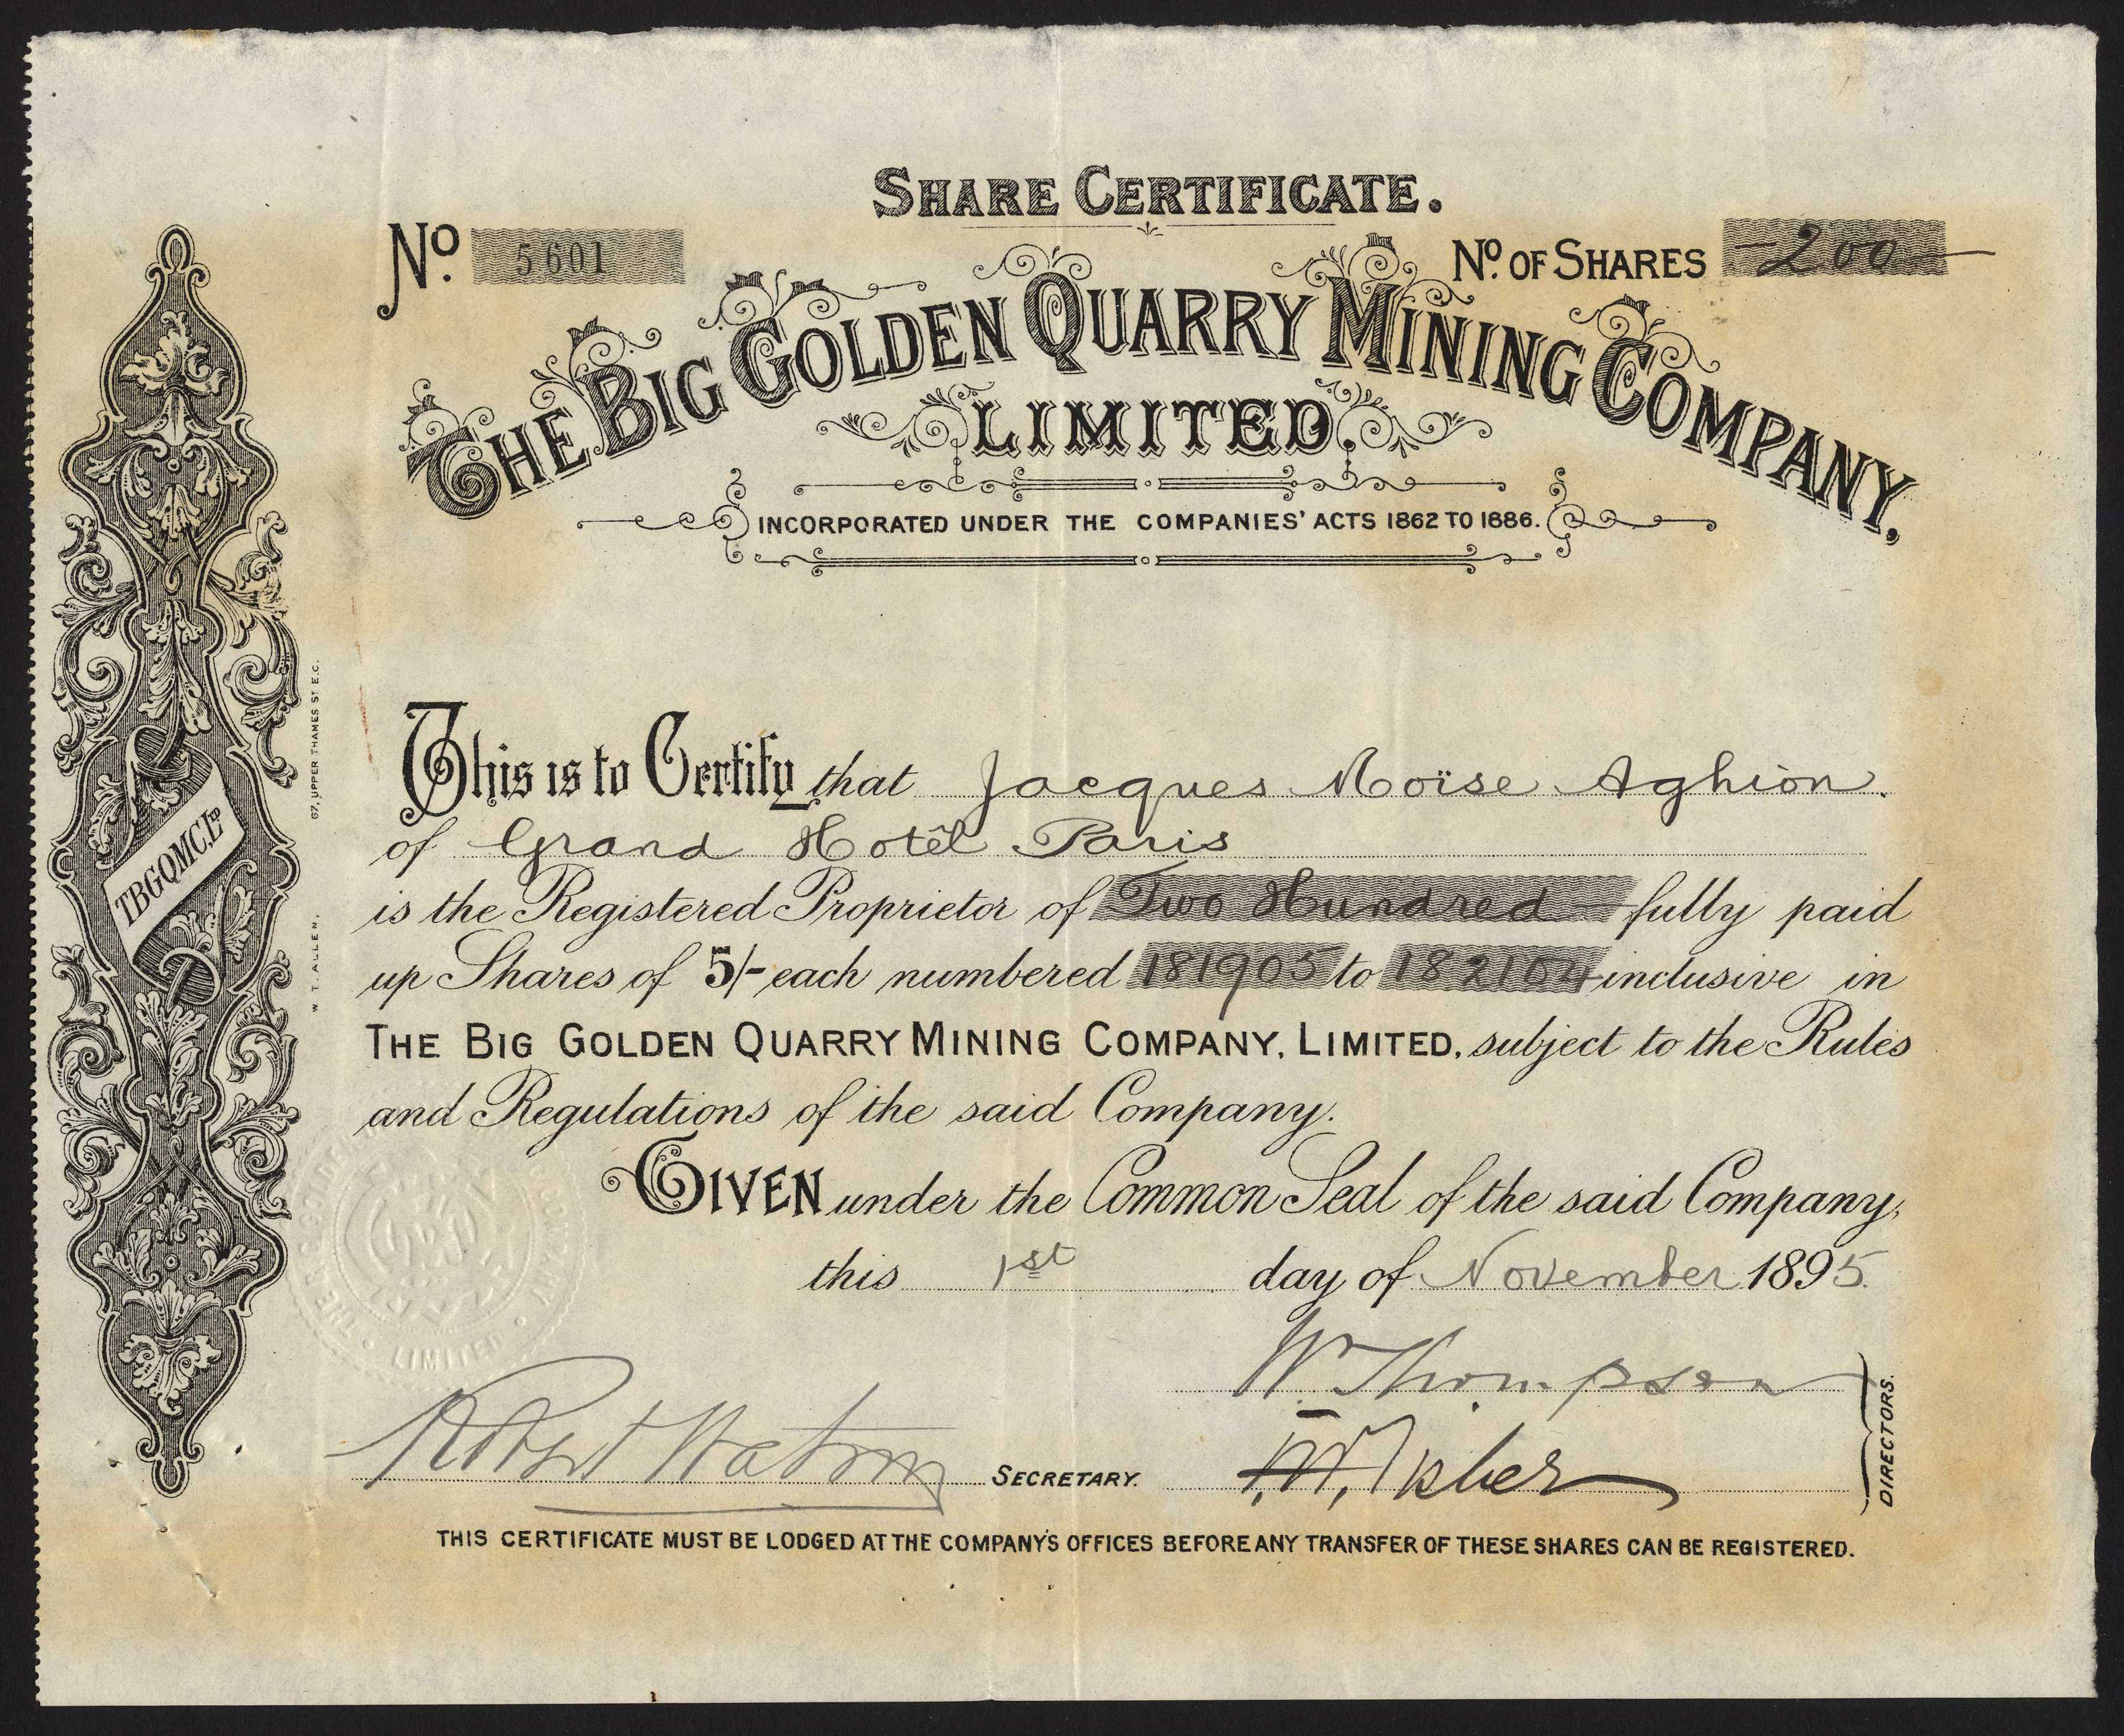 SHARE CERTIFICATE.
No. 5601
No. OF SHARES 200
THE BIG GOLDEN QUARRY MINING COMPANY,
LIMITED.
INCORPORATED UNDER THE COMPANIES' ACTS 1862 TO 1886.
This is to Certify that Jacques Moïse Aghion.
of Grand Hotêl Paris
is the Registered Proprietor of Two Hundred fully paid
up Shares of 5/- each numbered 181905 to 182104 inclusive in
THE BIG GOLDEN QUARRY MINING COMPANY, LIMITED, subject to the Rules
and Regulations of the said Company.
GIVEN under the Common Seal of the said Company,
this 1st day of November 1895.
W. Thompson
Robert Watson SECRETARY.
DIRECTORS.
THIS CERTIFICATE MUST BE LODGED AT THE COMPANY'S OFFICES BEFORE ANY TRANSFER OF THESE SHARES CAN BE REGISTERED.
TBGQMC.LD
W. T. ALLEN.
UPPER THAMES ST E.C.
THE LIMITED